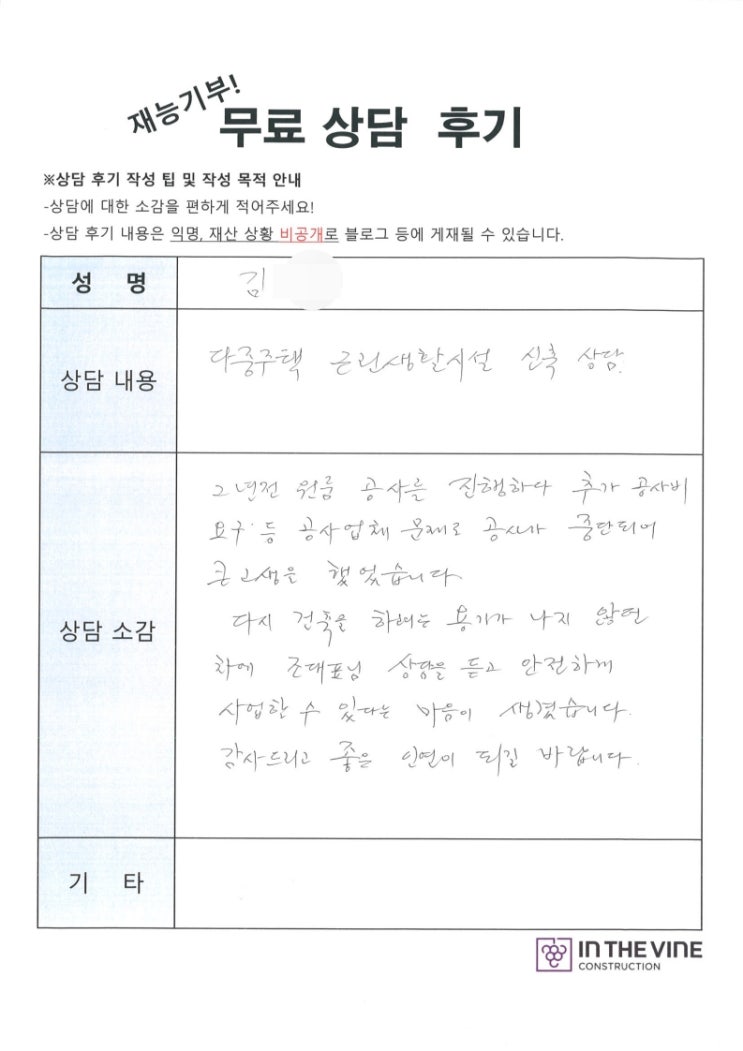 재능기부!
무료 상담 후기
※상담 후기 작성 팁 및 작성 목적 안내
-상담에 대한 소감을 편하게 적어주세요!
-상담 후기 내용은 익명, 재산 상황 비공개로 블로그 등에 게재될 수 있습니다.
성 명
김
상담 내용
다중주택 근린생활시설 신축 상담.
상담 소감
2년전 원룸 공사를 진행하다 추가 공사비
요구 등 공사업체 문제로 공사가 중단되어
큰 고생을 했었습니다.
다시 건축을 하려는 용기가 나지 않던
차에 조대표님 상담을 듣고 안전하게
사업할 수 있다는 마음이 생겼습니다.
감사드리고 좋은 인연이 되길 바랍니다.
기 타
IN THE VINE
CONSTRUCTION